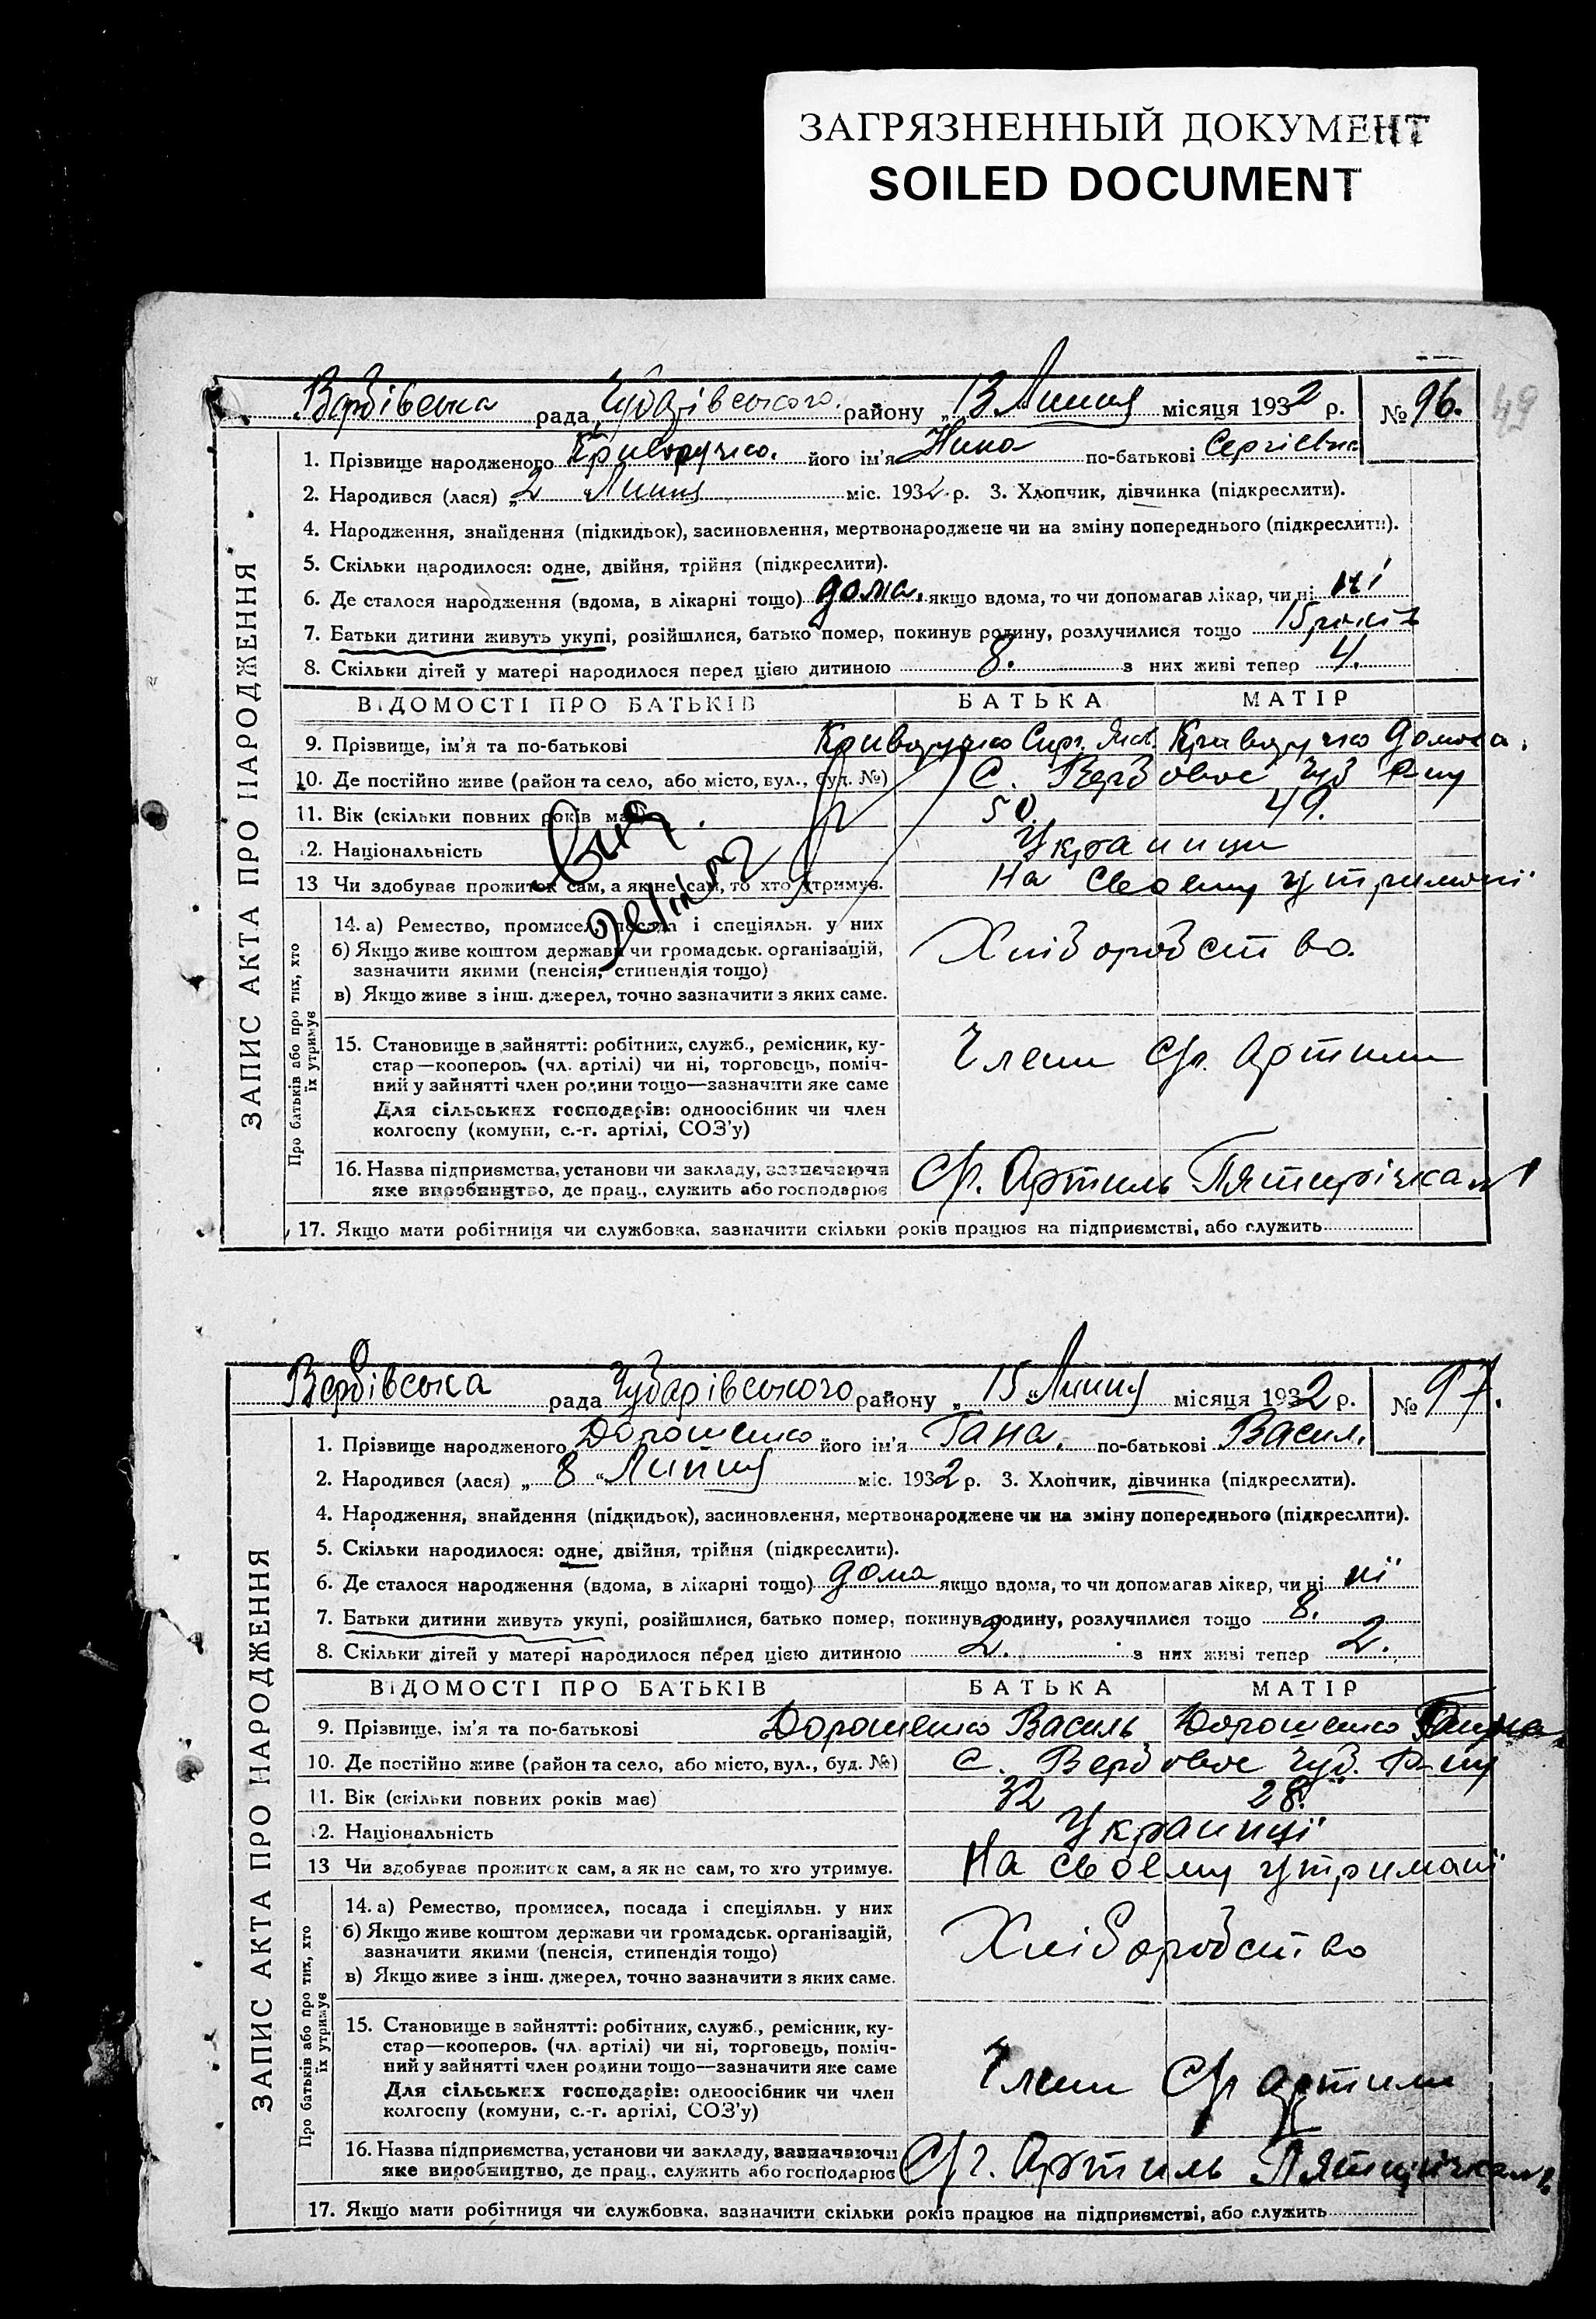 ЗАГРЯЗНЕННЫЙ ДОКУМЕНТ
SOILED DOCUMENT
49
Вербівська рада Чубарівського району „13 Липня місяця 1932 р. № 96.
ЗАПИС АКТА ПРО НАРОДЖЕННЯ
1. Прізвище народженого Криворучко. його ім'я Нина по-батькові Сергієвна
2. Народився (лася) „2 Липня міс. 1932 р. 3. Хлопчик, дівчинка (підкреслити).
4. Народження, знайдення (підкидьок), засиновлення, мертвонароджене чи на зміну попереднього (підкреслити).
5. Скільки народилося: одне, двійня, трійня (підкреслити).
6. Де сталося народження (вдома, в лікарні тощо) дома. якщо вдома, то чи допомагав лікар, чи ні ні
7. Батьки дитини живуть укупі, розійшлися, батько помер, покинув родину, розлучилися тощо 15
8. Скільки дітей у матері народилося перед цією дитиною 8. з них живі тепер 4.
ВІДОМОСТІ ПРО БАТЬКІВ БАТЬКА МАТІР
9. Прізвище, ім'я та по-батькові Криворучко Криворучко
10. Де постійно живе (район та село, або місто, вул., буд. №) С. Вербовое Чуб р-ну
11. Вік (скільки повних років має) 50. 49.
12. Національність Украинци
13 Чи здобуває прожиток сам, а як не сам, то хто утримує. На своему утримані
Про батьків або про тих, хто їх утримує
14. а) Ремество, промисел, посада і спеціяльн. у них Хліборобство.
б) Якщо живе коштом держави чи громадськ. організацій,
зазначити якими (пенсія, стипендія тощо)
в) Якщо живе з інш. джерел, точно зазначити з яких саме.
15. Становище в зайнятті: робітник, служб., ремісник, ку-
стар—кооперов. (чл. артілі) чи ні, торговець, поміч-
ний у зайнятті член родини тощо—зазначити яке саме
Члени артили
Для сільських господарів: одноосібник чи член
колгоспу (комуни, с.-г. артілі, СОЗ'у)
16. Назва підприємства, установи чи закладу, зазначаючи
яке виробництво, де прац., служить або господарює
Артиль Пятирічка №1
17. Якщо мати робітниця чи службовка, зазначити скільки років працює на підприємстві, або служить
Вербівська рада Чубарівського району „15 „Липня місяця 1932 р. № 97.
ЗАПИС АКТА ПРО НАРОДЖЕННЯ
1. Прізвище народженого Дорошенко його ім'я Гана. по-батькові Васил.
2. Народився (лася) „ 8 „Липня міс. 1932 р. 3. Хлопчик, дівчинка (підкреслити).
4. Народження, знайдення (підкидьок), засиновлення, мертвонароджене чи на зміну попереднього (підкреслити).
5. Скільки народилося: одне, двійня, трійня (підкреслити).
6. Де сталося народження (вдома, в лікарні тощо) дома якщо вдома, то чи допомагав лікар, чи ні ні
7. Батьки дитини живуть укупі, розійшлися, батько помер, покинув родину, розлучилися тощо 8.
8. Скільки дітей у матері народилося перед цією дитиною 2. з них живі тепер 2.
ВІДОМОСТІ ПРО БАТЬКІВ БАТЬКА МАТІР
9. Прізвище, ім'я та по-батькові Дорошенко Василь Дорошенко
10. Де постійно живе (район та село, або місто, вул., буд. №) С. Вербовое Чуб. р-ну
11. Вік (скільки повних років має) 32 28.
12. Національність Украинці
13 Чи здобуває прожиток сам, а як не сам, то хто утримує. На своему утримані
Про батьків або про тих, хто їх утримує
14. а) Ремество, промисел, посада і спеціяльн. у них Хліборобство
б) Якщо живе коштом держави чи громадськ. організацій,
зазначити якими (пенсія, стипендія тощо)
в) Якщо живе з інш. джерел, точно зазначити з яких саме.
15. Становище в зайнятті: робітник, служб., ремісник, ку-
стар—кооперов. (чл. артілі) чи ні, торговець, поміч-
ний у зайнятті член родини тощо—зазначити яке саме
Члени артили
Для сільських господарів: одноосібник чи член
колгоспу (комуни, с.-г. артілі, СОЗ'у)
16. Назва підприємства, установи чи закладу, зазначаючи
яке виробництво, де прац., служить або господарює
Артиль Пятирічка №1.
17. Якщо мати робітниця чи службовка, зазначити скільки років працює на підприємстві, або служить